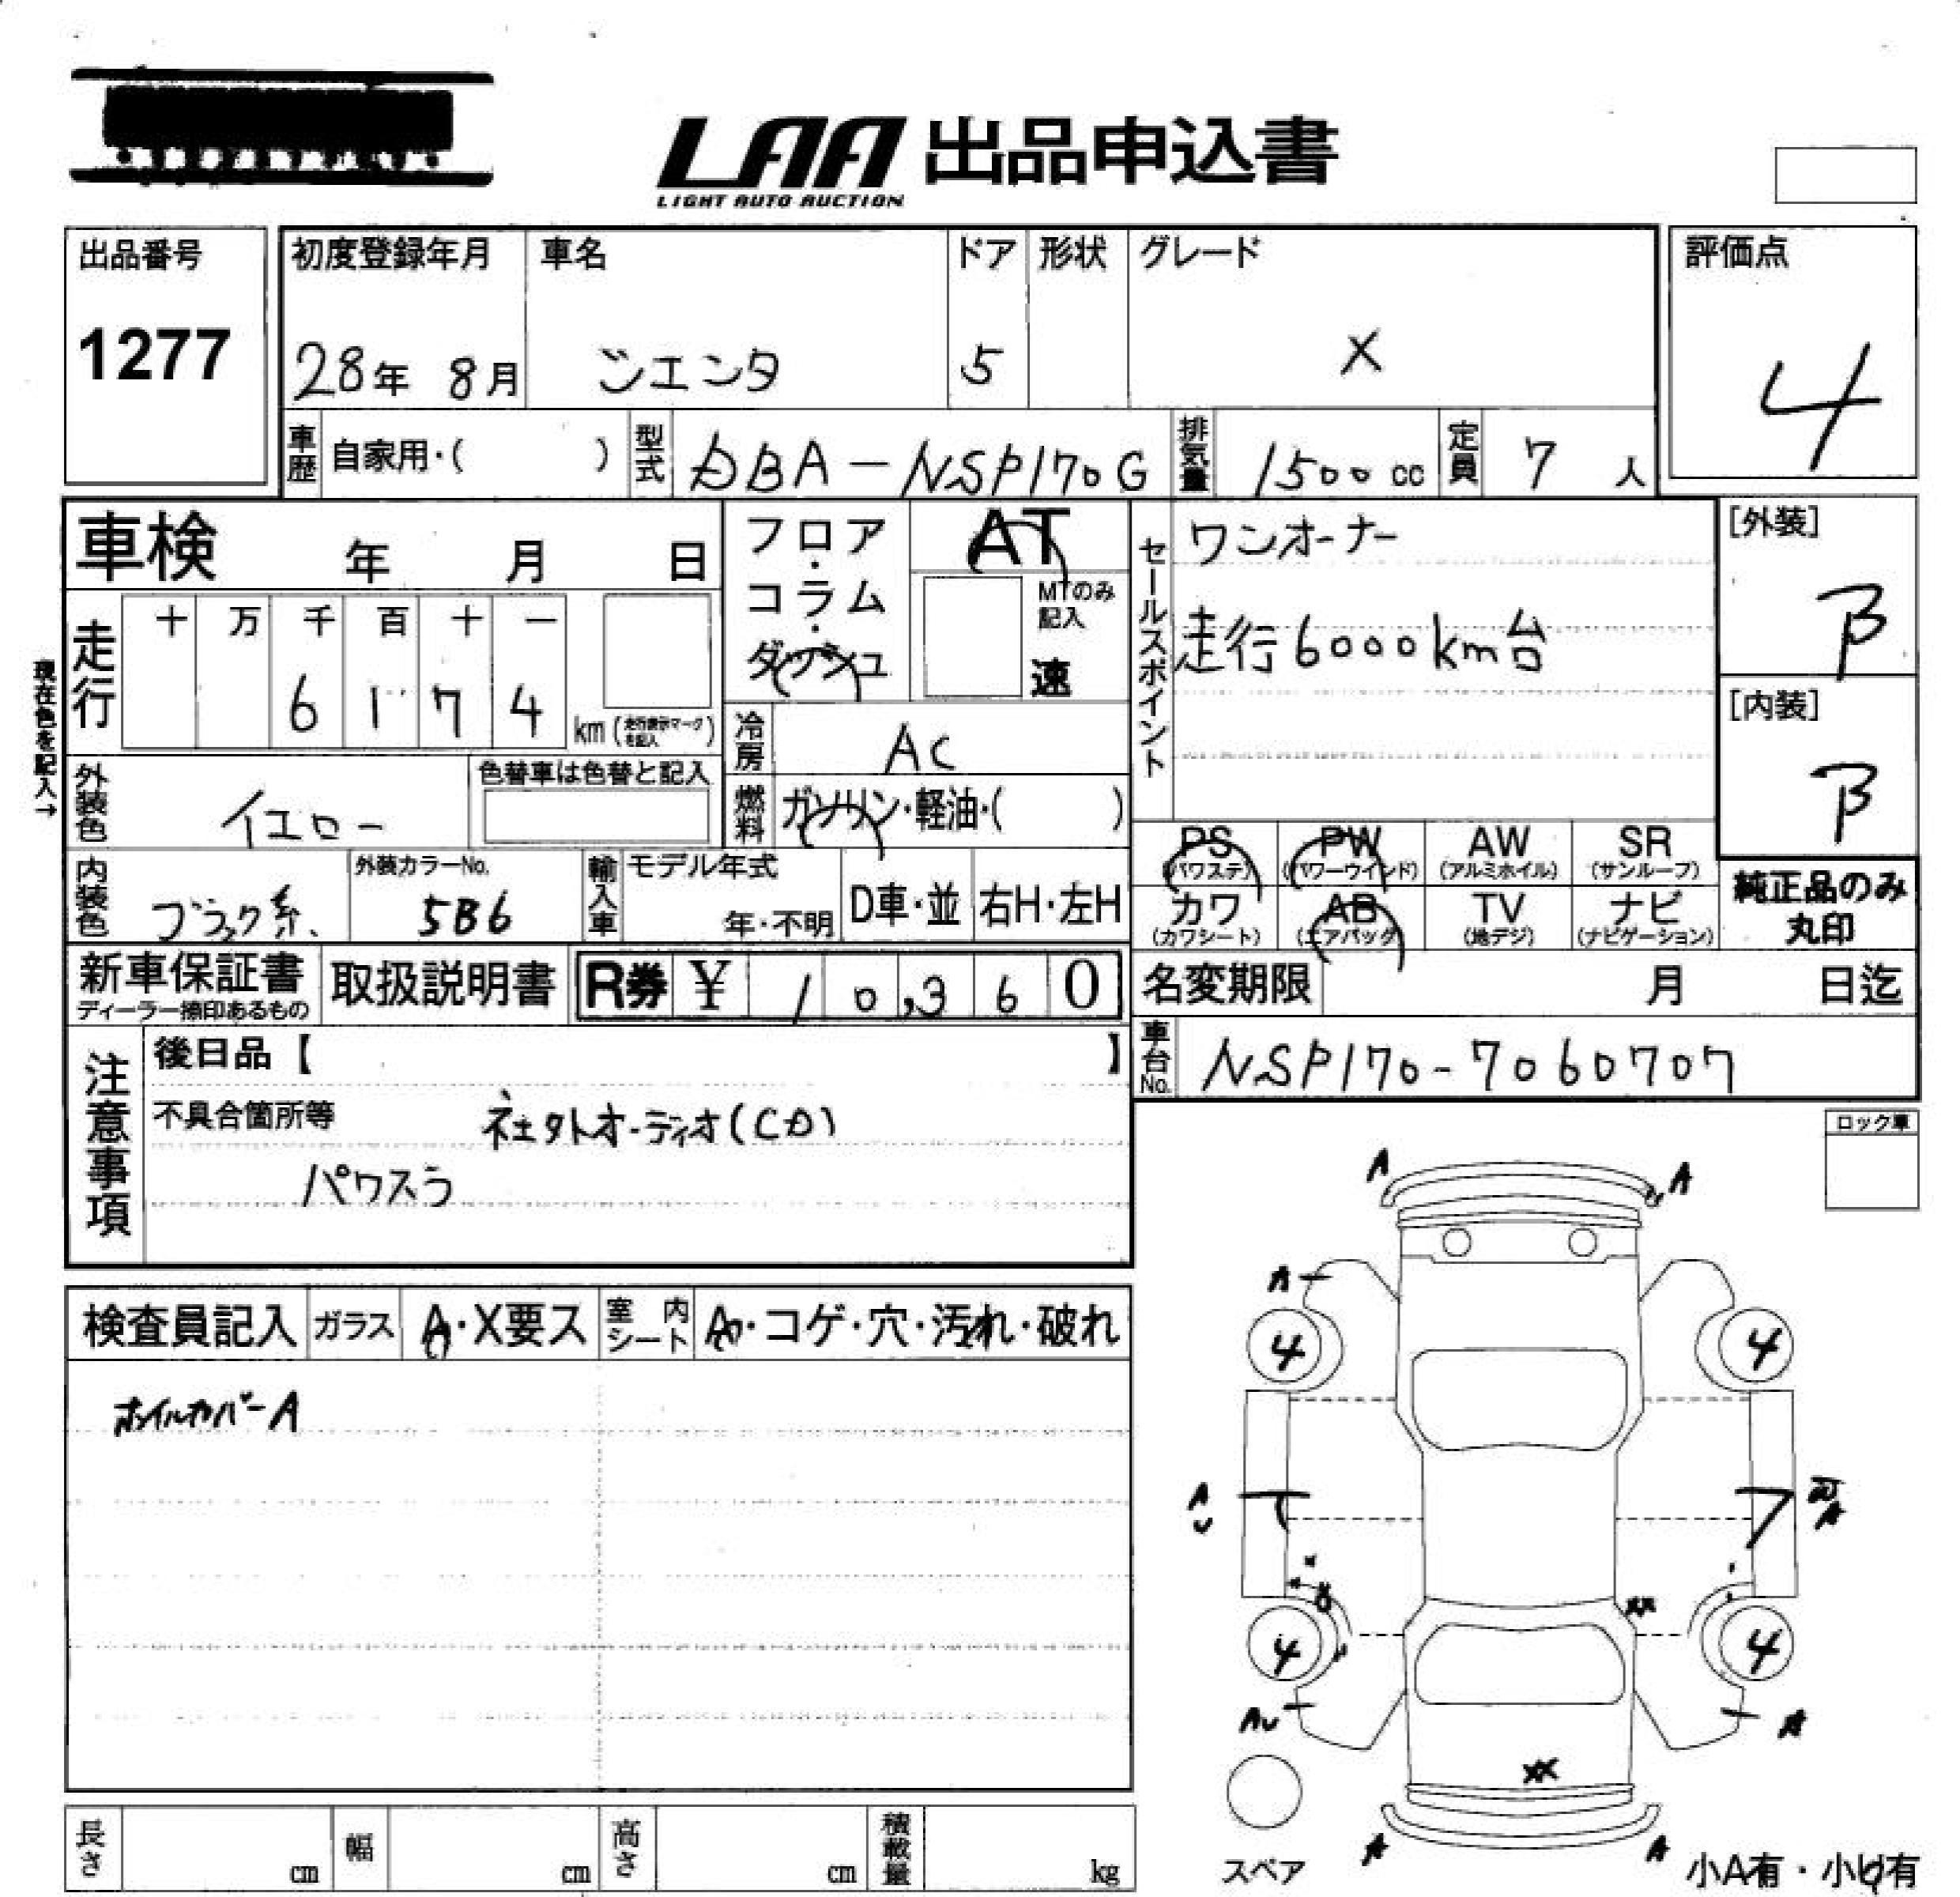 LAA 出品申込書
LIGHT AUTO AUCTION
出品番号
1277
初度登録年月
28年 8月
車名
シエンタ
ドア
5
形状
グレード
X
評価点
4
車歴 自家用・( )
型式 DBA-NSP170G
排気量 1500 cc
定員 7 人
車検 年 月 日
フロア・コラム・ダッシュ
AT
MTのみ記入
速
セールスポイント
ワンオーナー
走行6000km台
[外装]
B
[内装]
B
現在色を記入→
走行
十 万 千 百 十 一
6 1 7 4
km (走行表示マークを記入)
冷房 AC
燃料 ガソリン・軽油・( )
外装色 イエロー
色替車は色替と記入
内装色 ブラック系
外装カラーNo.
5B6
輸入車 モデル年式
年・不明
D車・並
右H・左H
PS (パワステ)
PW (パワーウインド)
AW (アルミホイル)
SR (サンルーフ)
カワ (カワシート)
AB (エアバッグ)
TV (地デジ)
ナビ (ナビゲーション)
純正品のみ丸印
新車保証書
ディーラー捺印あるもの
取扱説明書
R券 ¥ 10,360
名変期限 月 日迄
車台No. NSP170-7060707
注意事項
後日品【 】
不具合箇所等
社外オーディオ(CD)
パワスラ
ロック車
検査員記入
ガラス A・X要ス
室内シート
コゲ・穴・汚れ・破れ
ホイルカバーA
A A
A
4 4
A
U
A
4 4
XX
AU A
XX
A A
スペア
小A有・小U有
長さ cm
幅 cm
高さ cm
積載量 kg